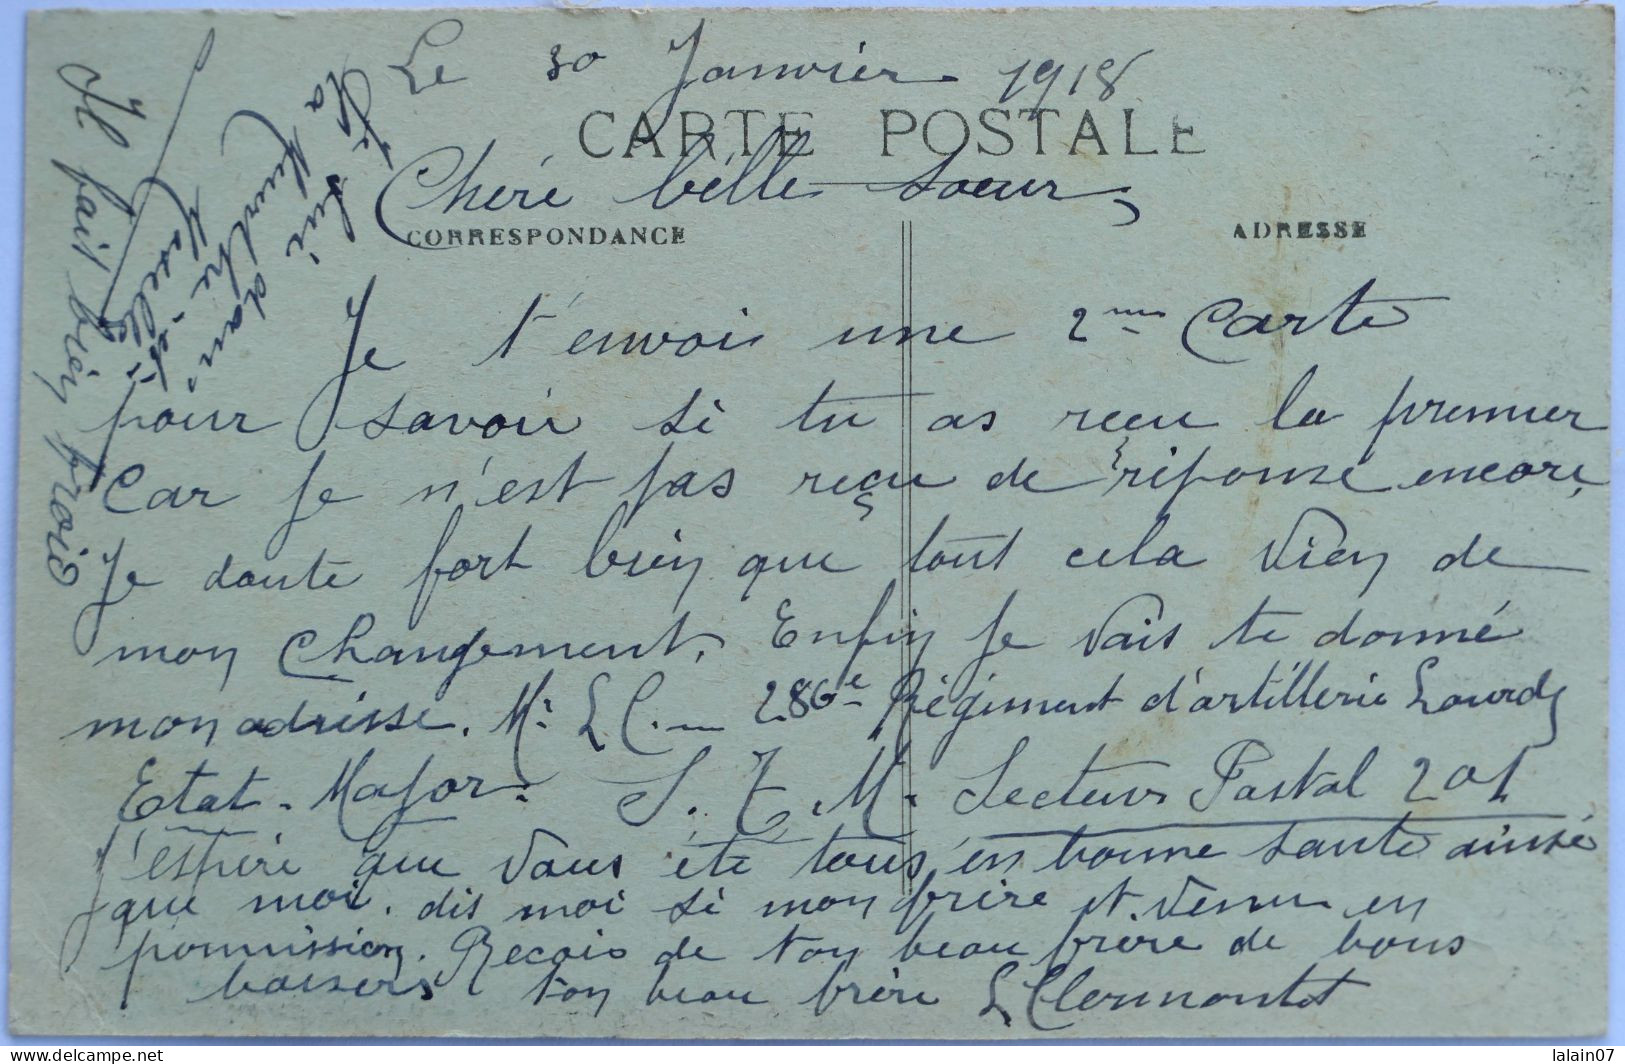 Le 30 Janvier 1918
CARTE POSTALE
Chère belle-soeur,
CORRESPONDANCE
ADRESSE
Je t'envois une 2me Carte
pour savoir si tu as reçu la premier
Car je n'est pas reçu de réponse encore,
Je doute fort bien que tout cela vien de
mon Changement. Enfin Je vais te donné
mon adrisse. Mr L C. — 286e Régiment d'artillerie Lourds
Etat-Major. S. T. M. Secteur Postal 201
J'espère que vous éte tous en bonne santé ainsé
que moi. dis moi si mon frère et venu en
permission. Recois de ton beau frère de bons
baisers ton beau frère L Clermontet
Je suis dans
la Meurthe-et-
Moselle.
Il fait bien froid
delcampe.net
lalain07